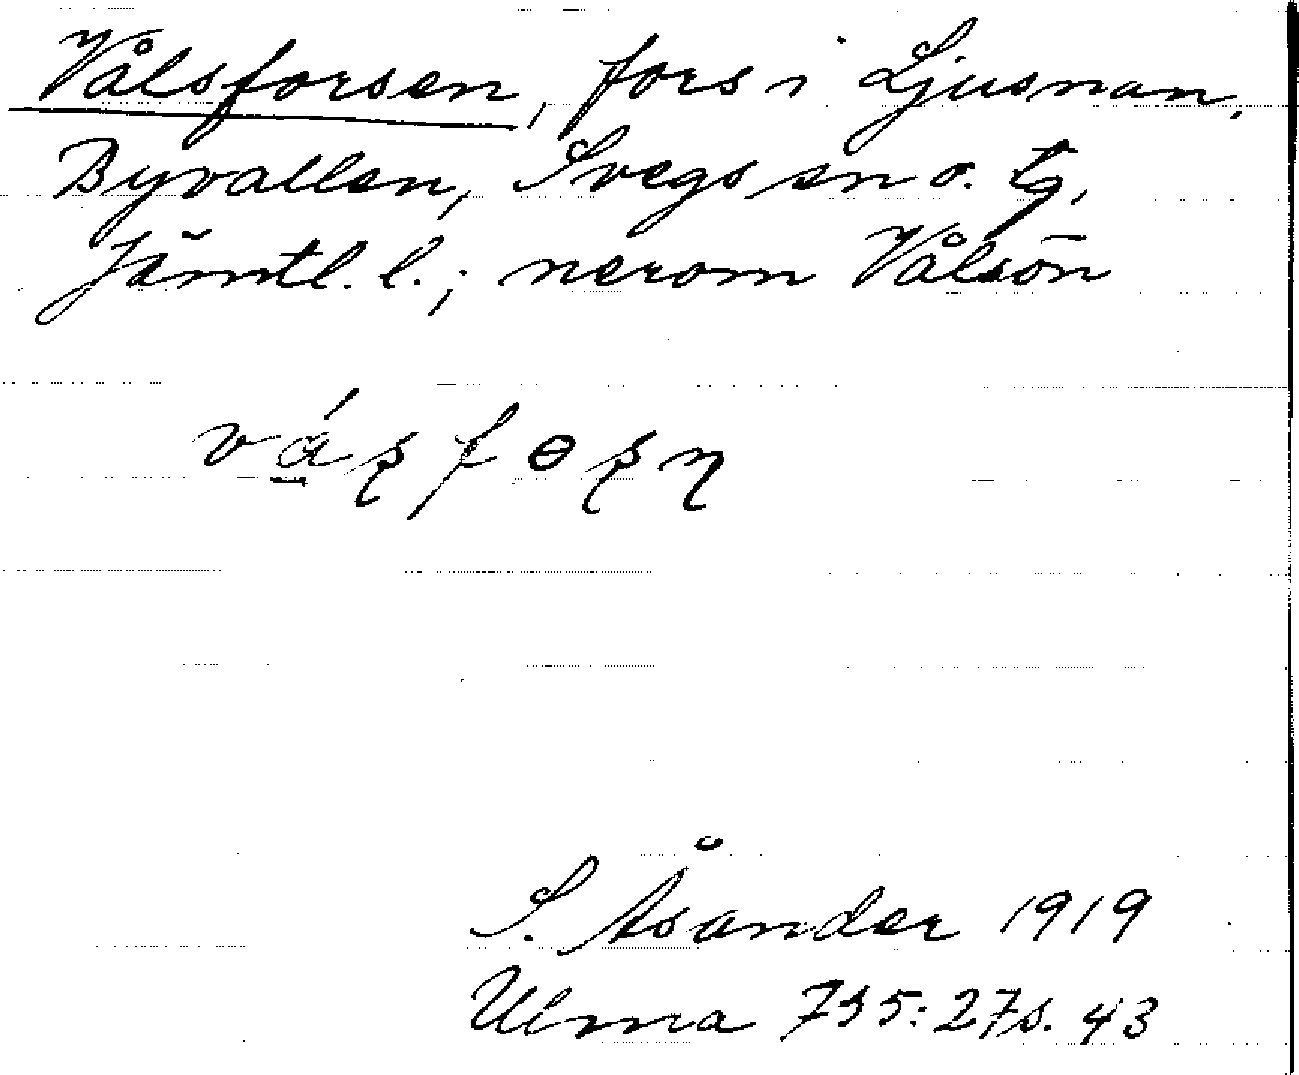 Vålsforsen, fors i Ljusnan,
Byvallen, Svegs sn o. tg,
Jämtl. l.; nerom Vålsön
S. Åsander 1919
Ulma 735:27 s. 43